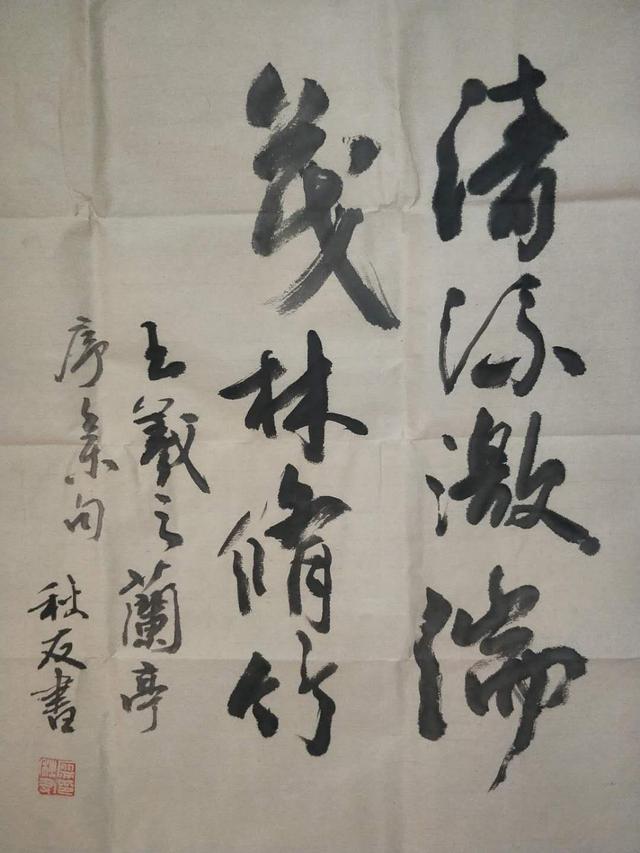 清流激湍
茂林脩竹
王羲之蘭亭
序集句
秋友書